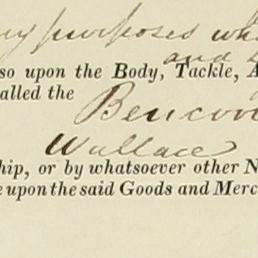 my purposes wh
and
so upon the Body, Tackle, A
alled the
Bencoo
Wallace
hip, or by whatsoever other N
e upon the said Goods and Merc